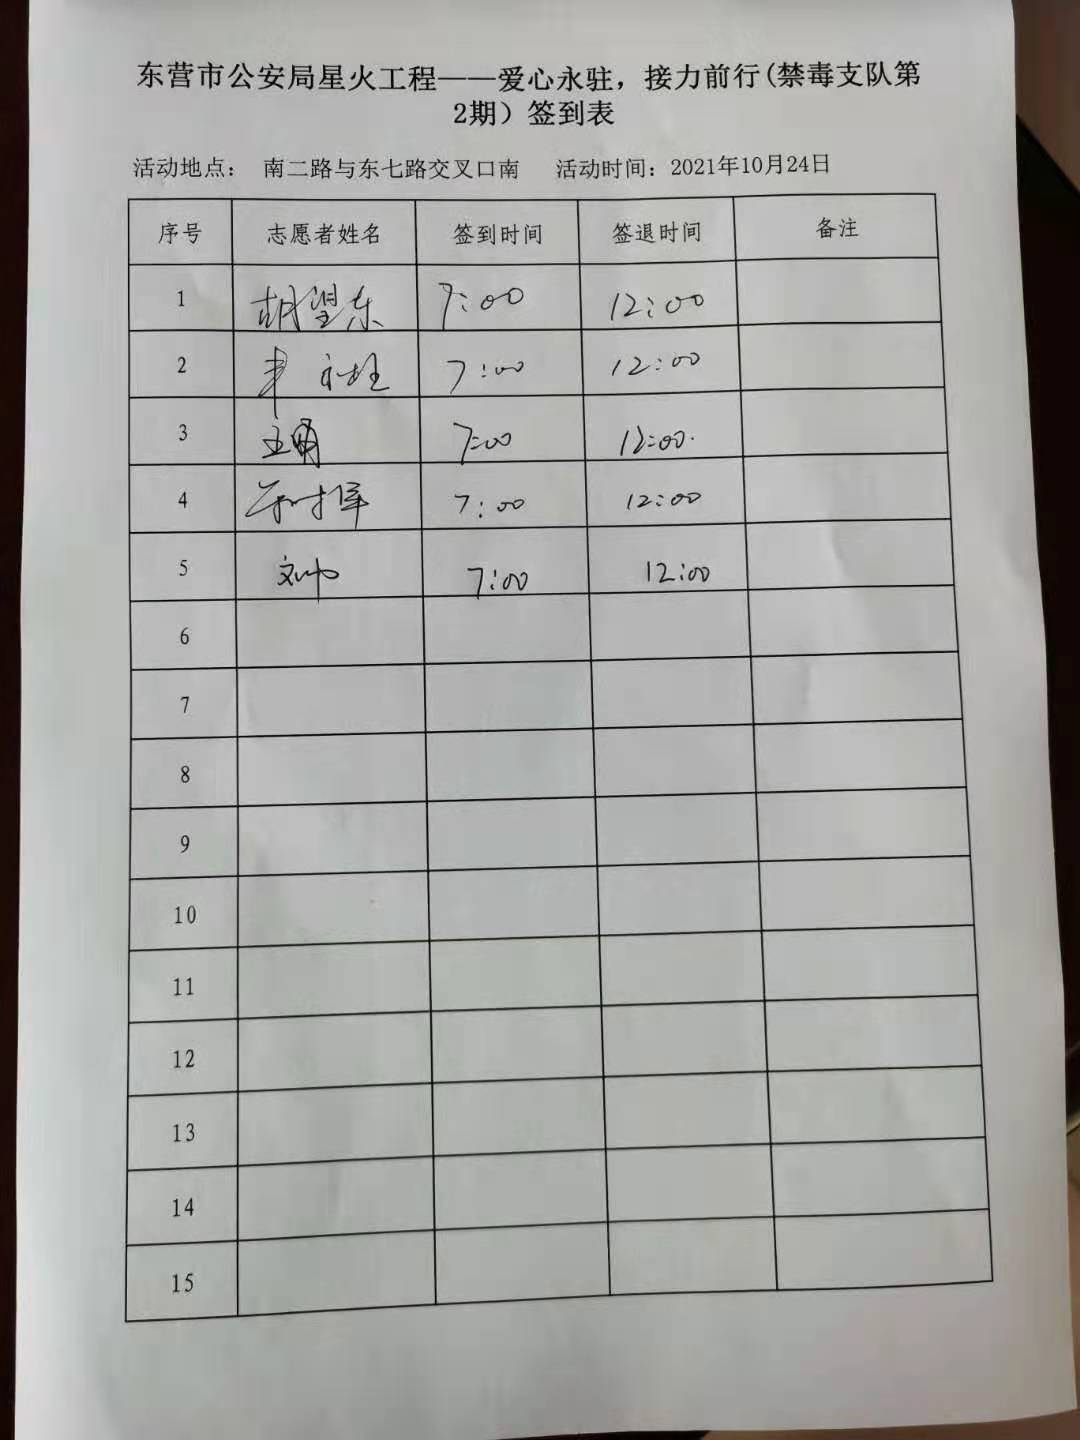 东营市公安局星火工程——爱心永驻，接力前行(禁毒支队第
2期）签到表
活动地点： 南二路与东七路交叉口南 活动时间：2021年10月24日
序号 志愿者姓名 签到时间 签退时间 备注
1 胡望东 7:00 12:00
2 7:00 12:00
3 7:00 12:00.
4 7:00 12:00
5 刘帅 7:00 12:00
6
7
8
9
10
11
12
13
14
15